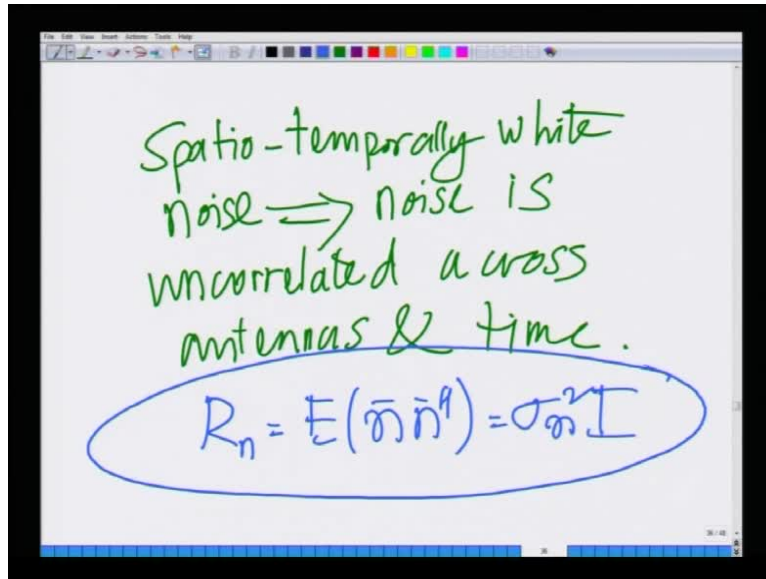 File Edit View Insert Actions Tools Help
Spatio-temporally white
noise ⇒ noise is
uncorrelated across
antennas & time.
Rₙ = E(n̄ n̄ᴴ) = σₙ² I
36/48
36